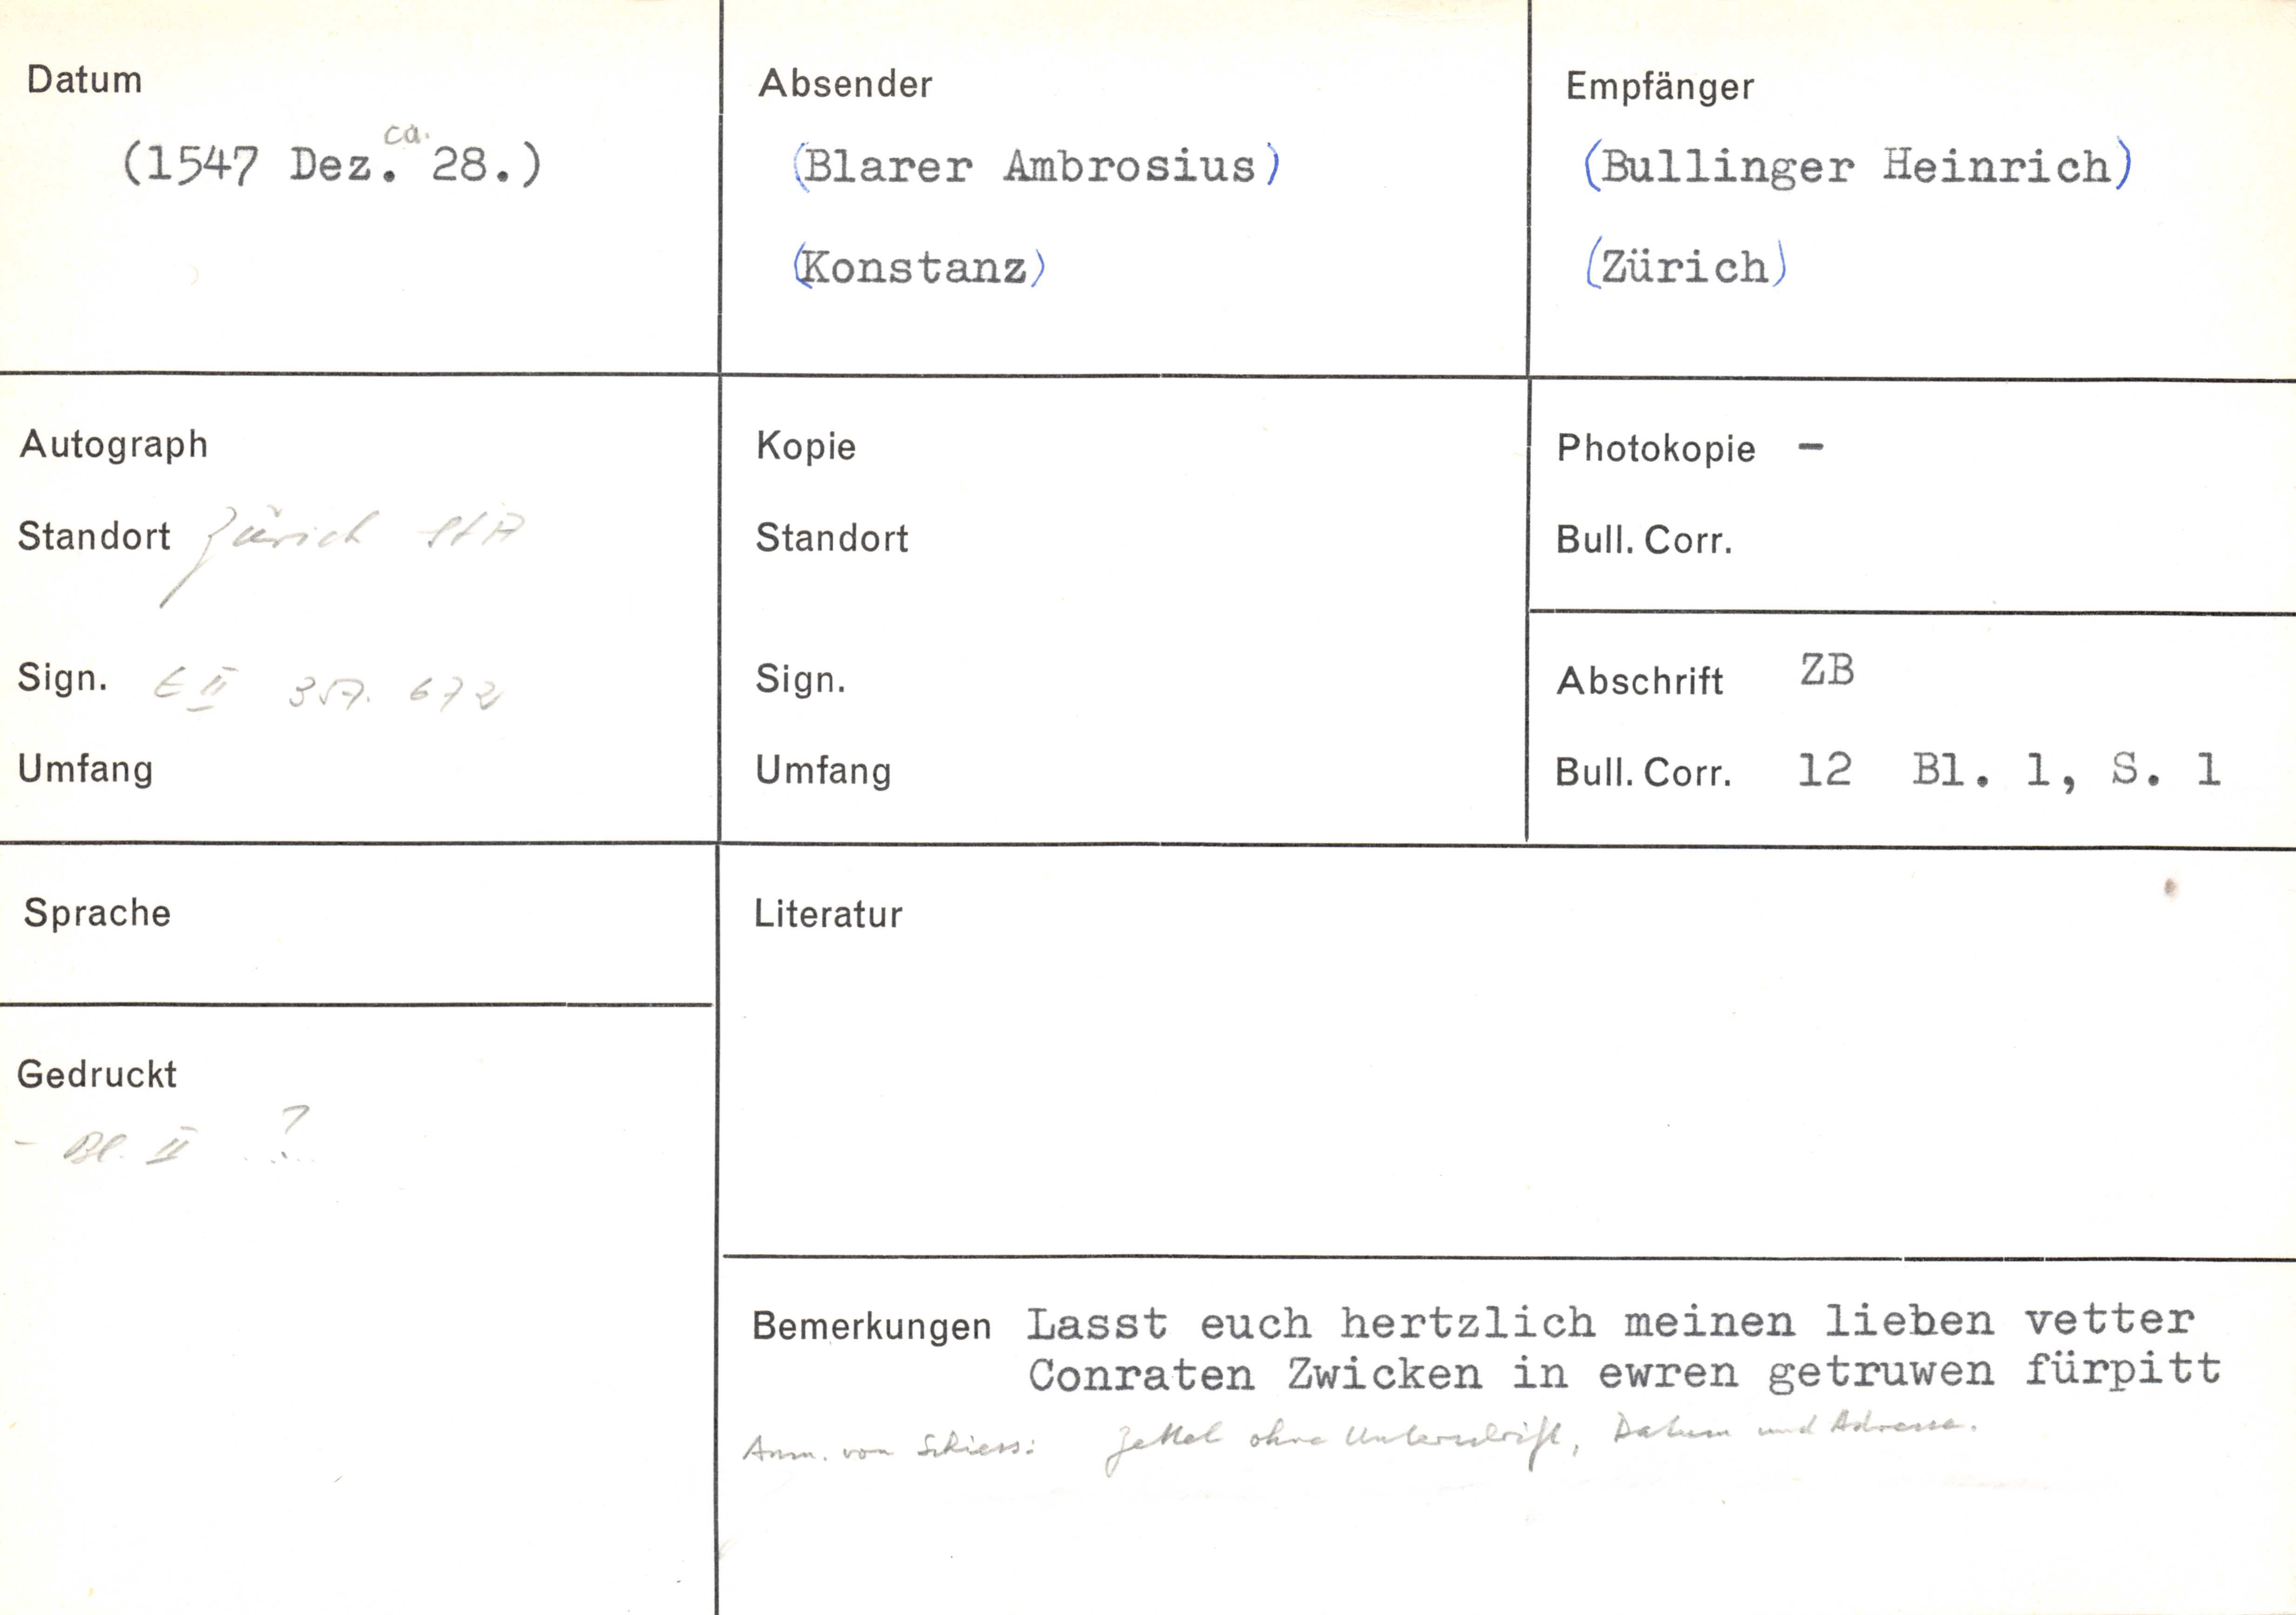 Datum
(1547 Dez. ca. 28.)
Absender
(Blarer Ambrosius)
(Konstanz)
Empfänger
(Bullinger Heinrich)
(Zürich)
Autograph
Standort Zürich StA
Sign. E II 357. 672
Umfang
Kopie
Standort
Sign.
Umfang
Photokopie -
Bull. Corr.
Abschrift ZB
Bull. Corr. 12 Bl. 1, S. 1
Sprache
Gedruckt
- Bl. II ?
Literatur
Bemerkungen Lasst euch hertzlich meinen lieben vetter
Conraten Zwicken in ewren getruwen fürpitt
Anm. von Schiess: Zettel ohne Unterschrift, Datum und Adresse.